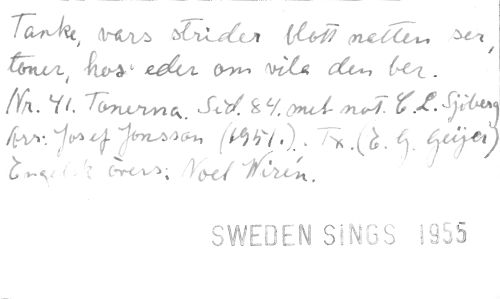 Tanke, vars strider blott natten ser,
toner, hos eder om vila den ber.
Nr. 41. Tonerna. Sid. 84. met not. C. L. Sjöberg
Arr: Josef Jonsson (1951.). Tx. (E. G. Geijer)
Engelsk övers: Noel Wirén.
SWEDEN SINGS 1955